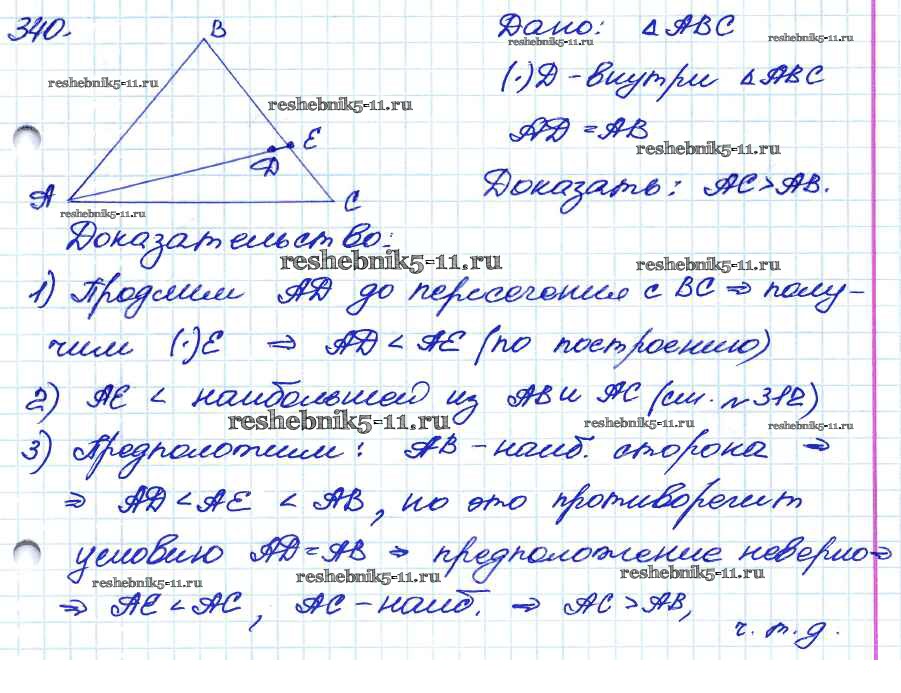 340.
B
Дано: △ ABC
reshebnik5-11.ru
reshebnik5-11.ru
reshebnik5-11.ru
(·)D - внутри △ABC
reshebnik5-11.ru
AD = AB
E
reshebnik5-11.ru
D
Доказать: AC > AB.
A
C
reshebnik5-11.ru
Доказательство:
reshebnik5-11.ru
reshebnik5-11.ru
1) Продлим AD до пересечения с BC ⇒ полу-
чим (·)E ⇒ AD < AE (по построению)
2) AE < наибольшей из AB и AC (см. №312)
reshebnik5-11.ru
reshebnik5-11.ru
reshebnik5-11.ru
3) Предположим: AB - наиб. сторона ⇒
⇒ AD < AE < AB, но это противоречит
условию AD = AB ⇒ предположение неверно ⇒
reshebnik5-11.ru
reshebnik5-11.ru
reshebnik5-11.ru
⇒ AE < AC, AC - наиб. ⇒ AC > AB,
ч. т. д.